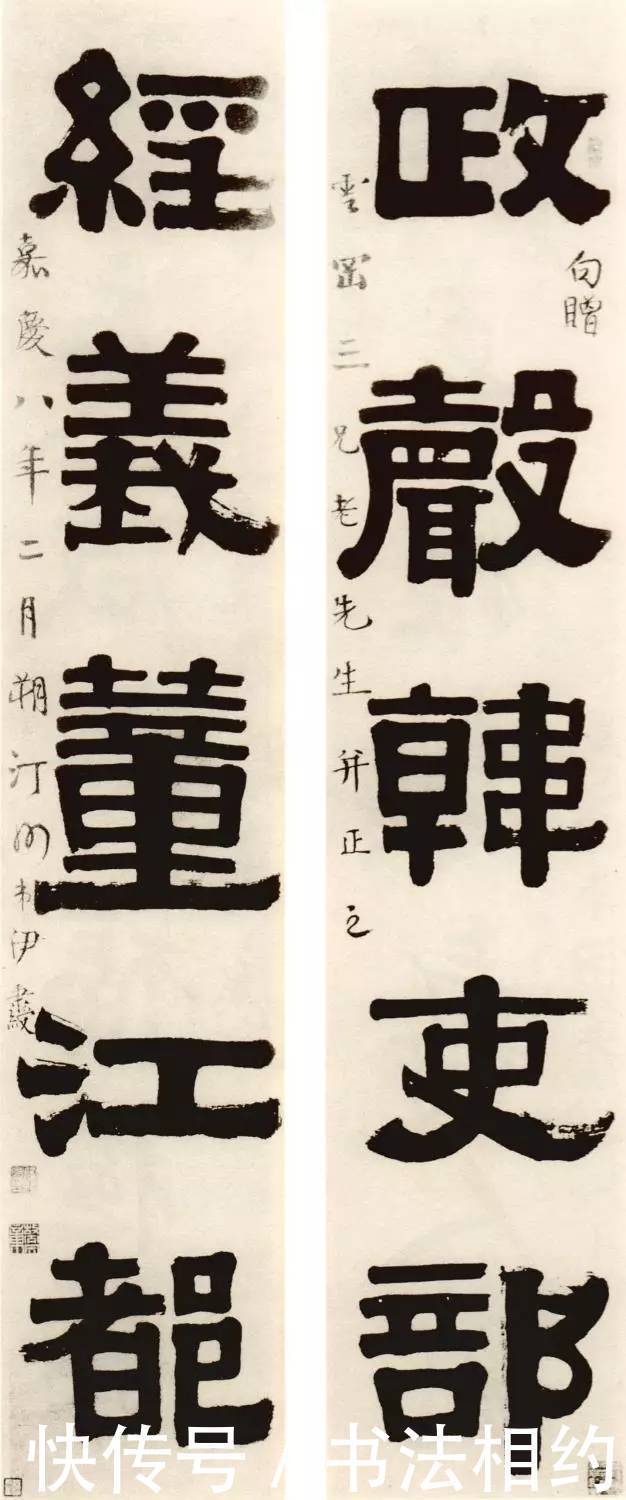 政聲韓吏部
句贈
雲崗三兄老先生并正之
經義董江都
嘉慶八年二月朔汀州弟伊秉綬
快传号 / 书法相约